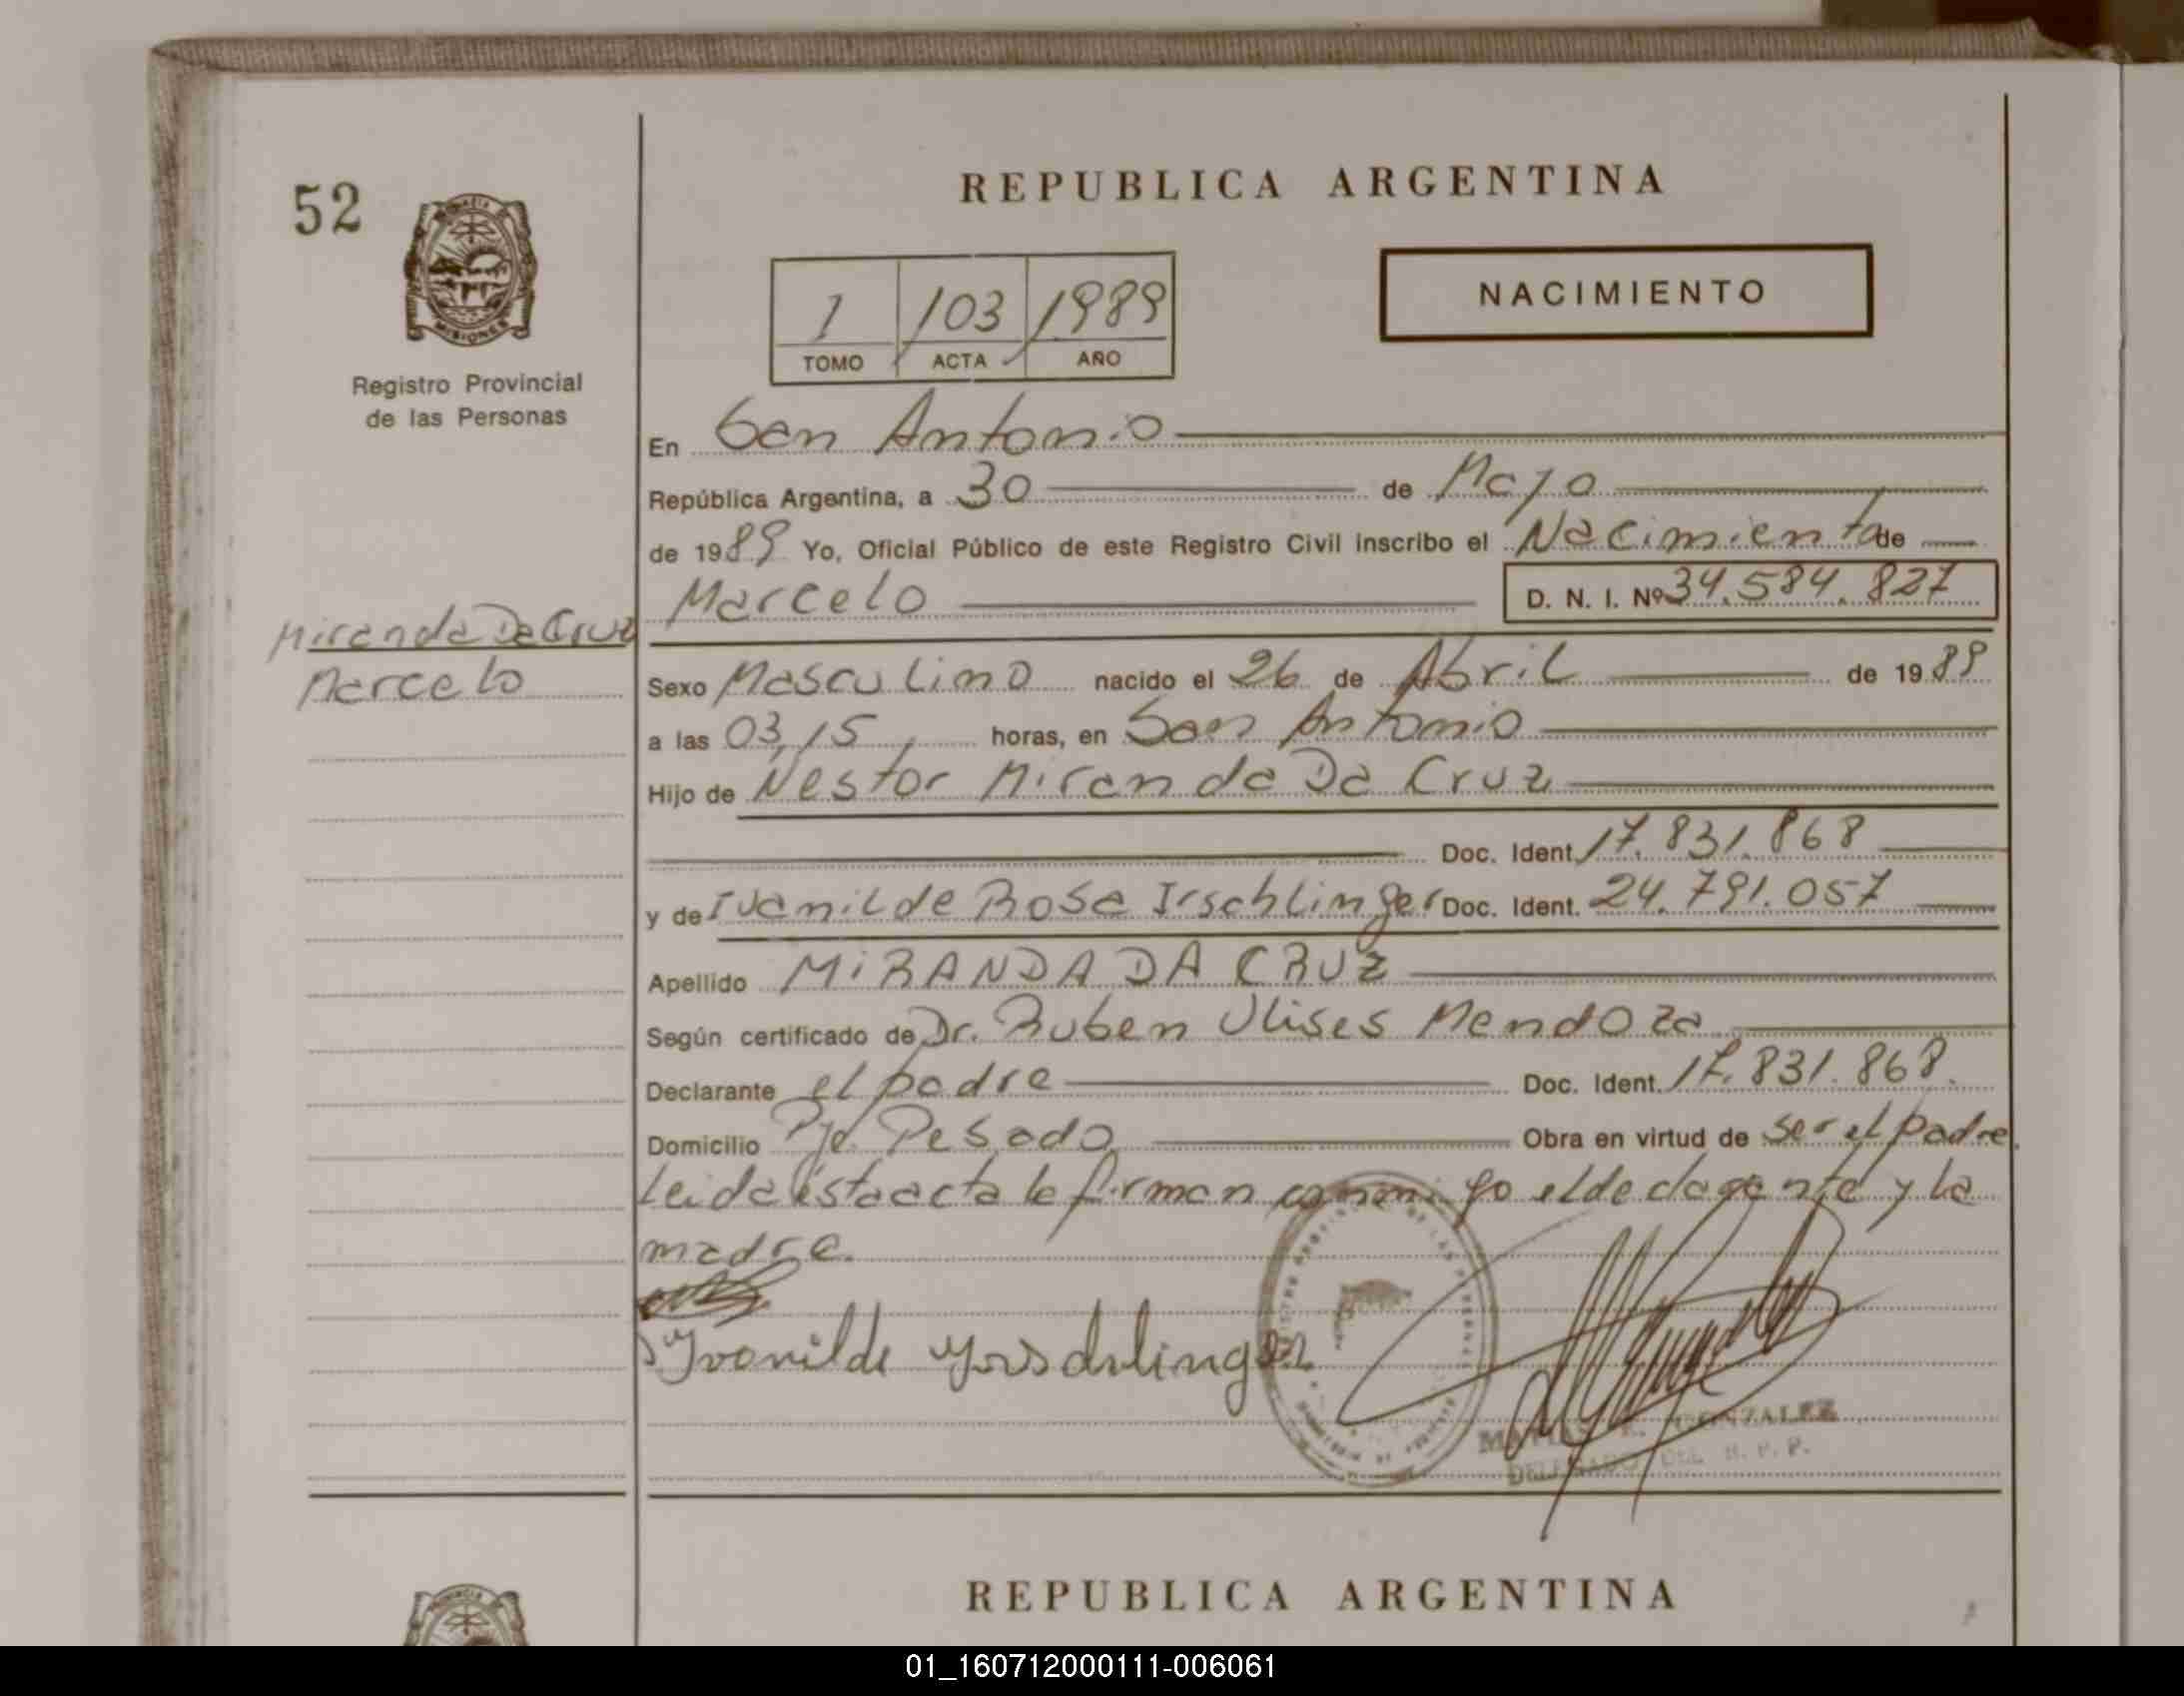 52
REPUBLICA ARGENTINA
PROVINCIA
MISIONES
Registro Provincial
de las Personas
1 103 1989
TOMO ACTA AÑO
NACIMIENTO
En San Antonio
República Argentina, a 30 de Mayo
de 1989 Yo, Oficial Público de este Registro Civil inscribo el Nacimiento de
Marcelo D. N. I. Nº 34.584.827
Miranda Da Cruz
Marcelo
Sexo Masculino nacido el 26 de Abril de 1989
a las 03,15 horas, en San Antonio
Hijo de Nestor Miranda Da Cruz
Doc. Ident. 17.831.868
y de Ivanilde Rosa Irschlinger Doc. Ident. 24.791.057
Apellido MIRANDA DA CRUZ
Según certificado de Dr. Ruben Ulises Mendoza
Declarante el padre Doc. Ident. 17.831.868.
Domicilio Pje. Pesado Obra en virtud de ser el padre.
Leida esta acta la firman conmigo el declarante y la
madre.
Yvonilde Yrschlinger
GONZALEZ
DELEGADO DEL R. P. P.
REPUBLICA ARGENTINA
01_160712000111-006061